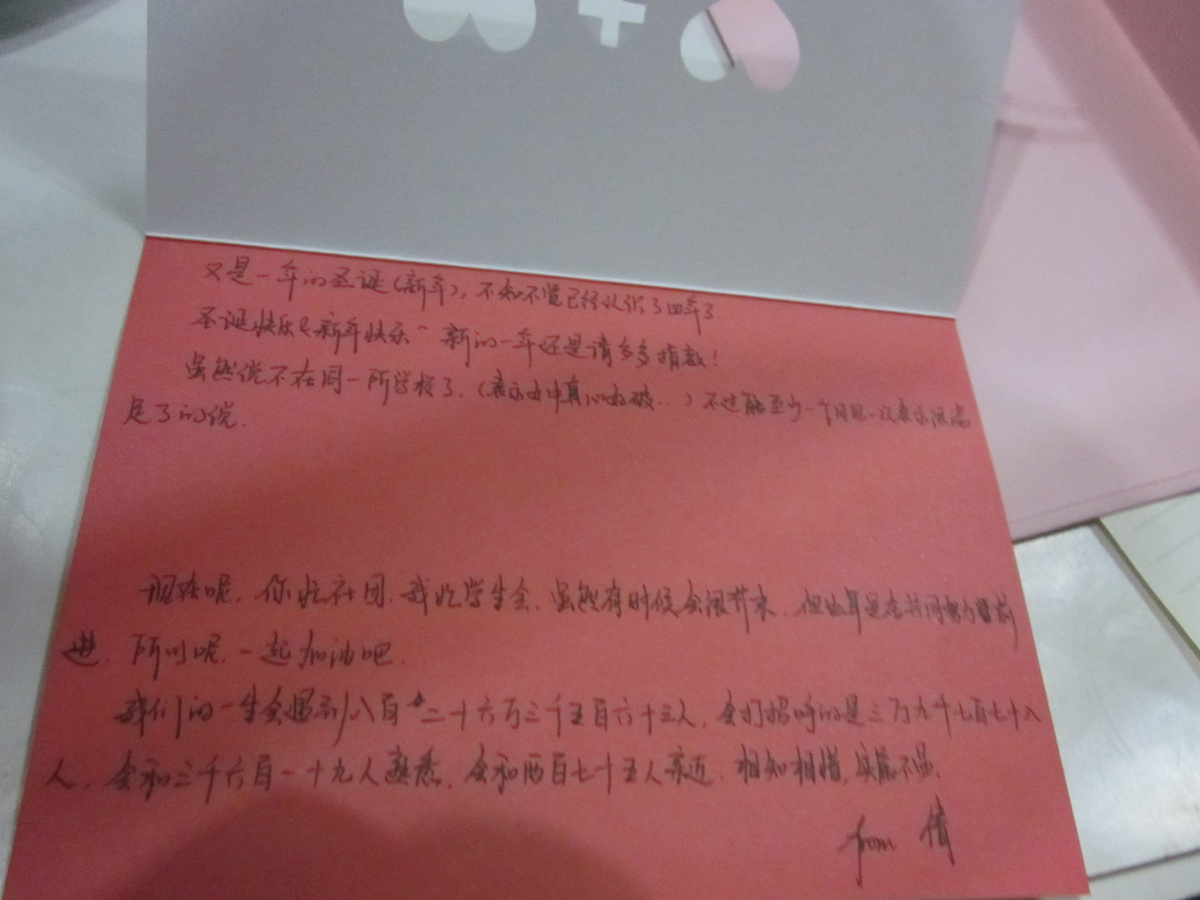 又是一年的圣诞(新年),不知不觉已经认识了四年了.
圣诞快乐&新年快乐^ 新的一年还是请多多指教!
虽然说不在同一所学校了.(表示 中真心 破...)不过能至少一个月见一次表示很满
足了的说.
现在呢.你忙社团.我忙学生会.虽然有时候会很 ,但也算是在共同努力 前
进.所以呢.一起加油吧.
我们的一生会遇到八百 二十六万三千五百六十三人.会打招呼的是三万九千七百七十八
人.会和三千六百一十九人熟悉.会和两百七十五人亲近.相知相惜,实属不易.
from 倩